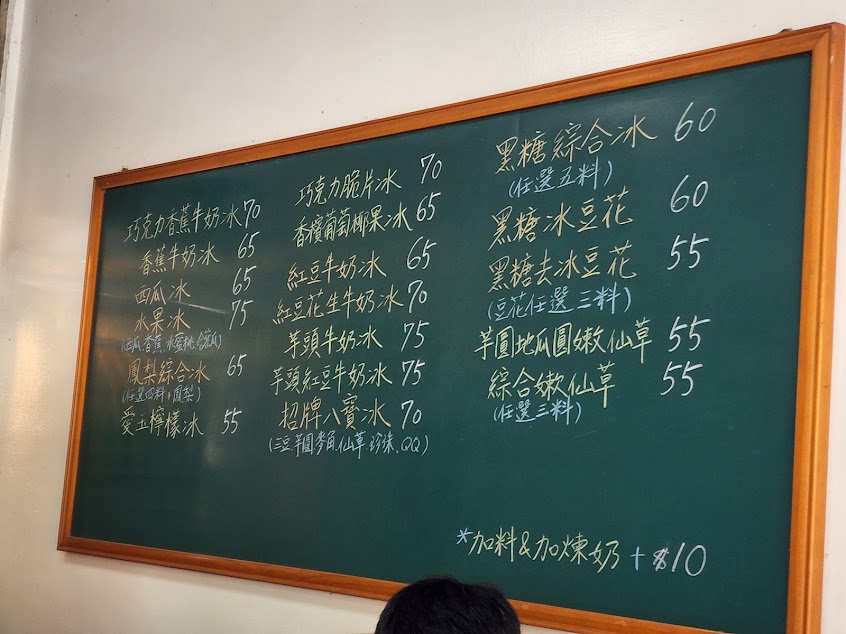 巧克力香蕉牛奶冰 70
香蕉牛奶冰 65
西瓜冰 65
水果冰 75
(西瓜.香蕉.水蜜桃.哈蜜瓜)
鳳梨綜合冰 65
(任選四料+鳳梨)
愛玉檸檬冰 55
巧克力脆片冰 70
香檳葡萄椰果冰 65
紅豆牛奶冰 65
紅豆花生牛奶冰 70
芋頭牛奶冰 75
芋頭紅豆牛奶冰 75
招牌八寶冰 70
(三豆.芋圓.麥角.仙草.珍珠.QQ)
黑糖綜合冰 60
(任選五料)
黑糖冰豆花 60
黑糖去冰豆花 55
(豆花任選三料)
芋圓地瓜圓嫩仙草 55
綜合嫩仙草 55
(任選三料)
*加料&加煉奶+$10